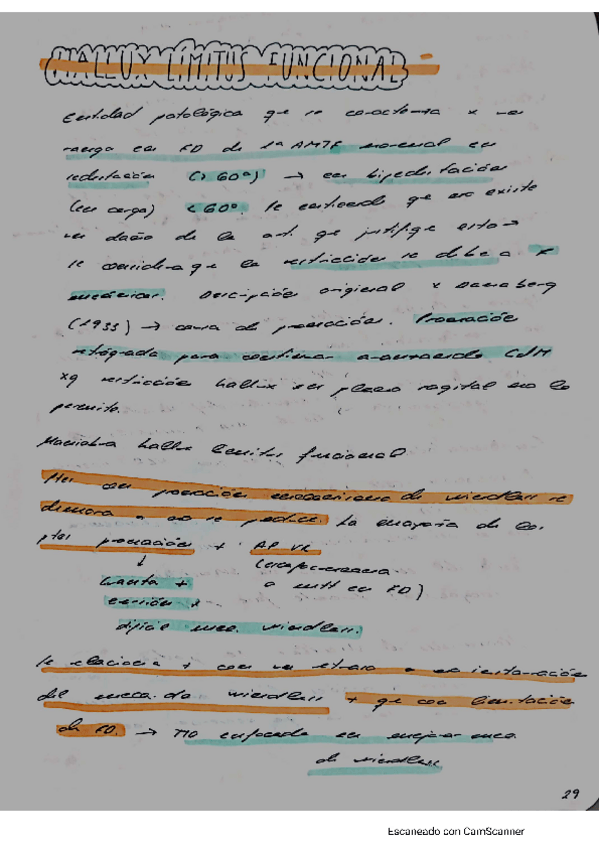 HALLUX LÍMITUS FUNCIONAL
Entidad patológica que se caracteriza x un
rango en FD de 1ª AMTF normal en
sedestación (>60º) → en bipedestación
(en carga) <60º. Se entiende que no existe
un daño de la art. que justifique esto →
se considera que la restricción se debe a x
mecánicas. Descripción original x Dananberg
(1933) → causa de pronación. Pronación
retrógrada para continuar avanzando CdM
xq restricción hallux en plano sagital no lo
permite.
Maniobra hallux limitus funcional
Pies con pronación mecanismo de windlass se
demora o no se produce. La mayoría de los
ptes pronación + AP VR
↓
o mtt en FD)
cuesta +
tensión x
difícil mec. windlass.
Se relaciona + con un retraso o no instauración
del meca. de windlass + que con limitación
de FD. → Tto enfocado en mejorar meca.
de windlass
29
Escaneado con CamScanner